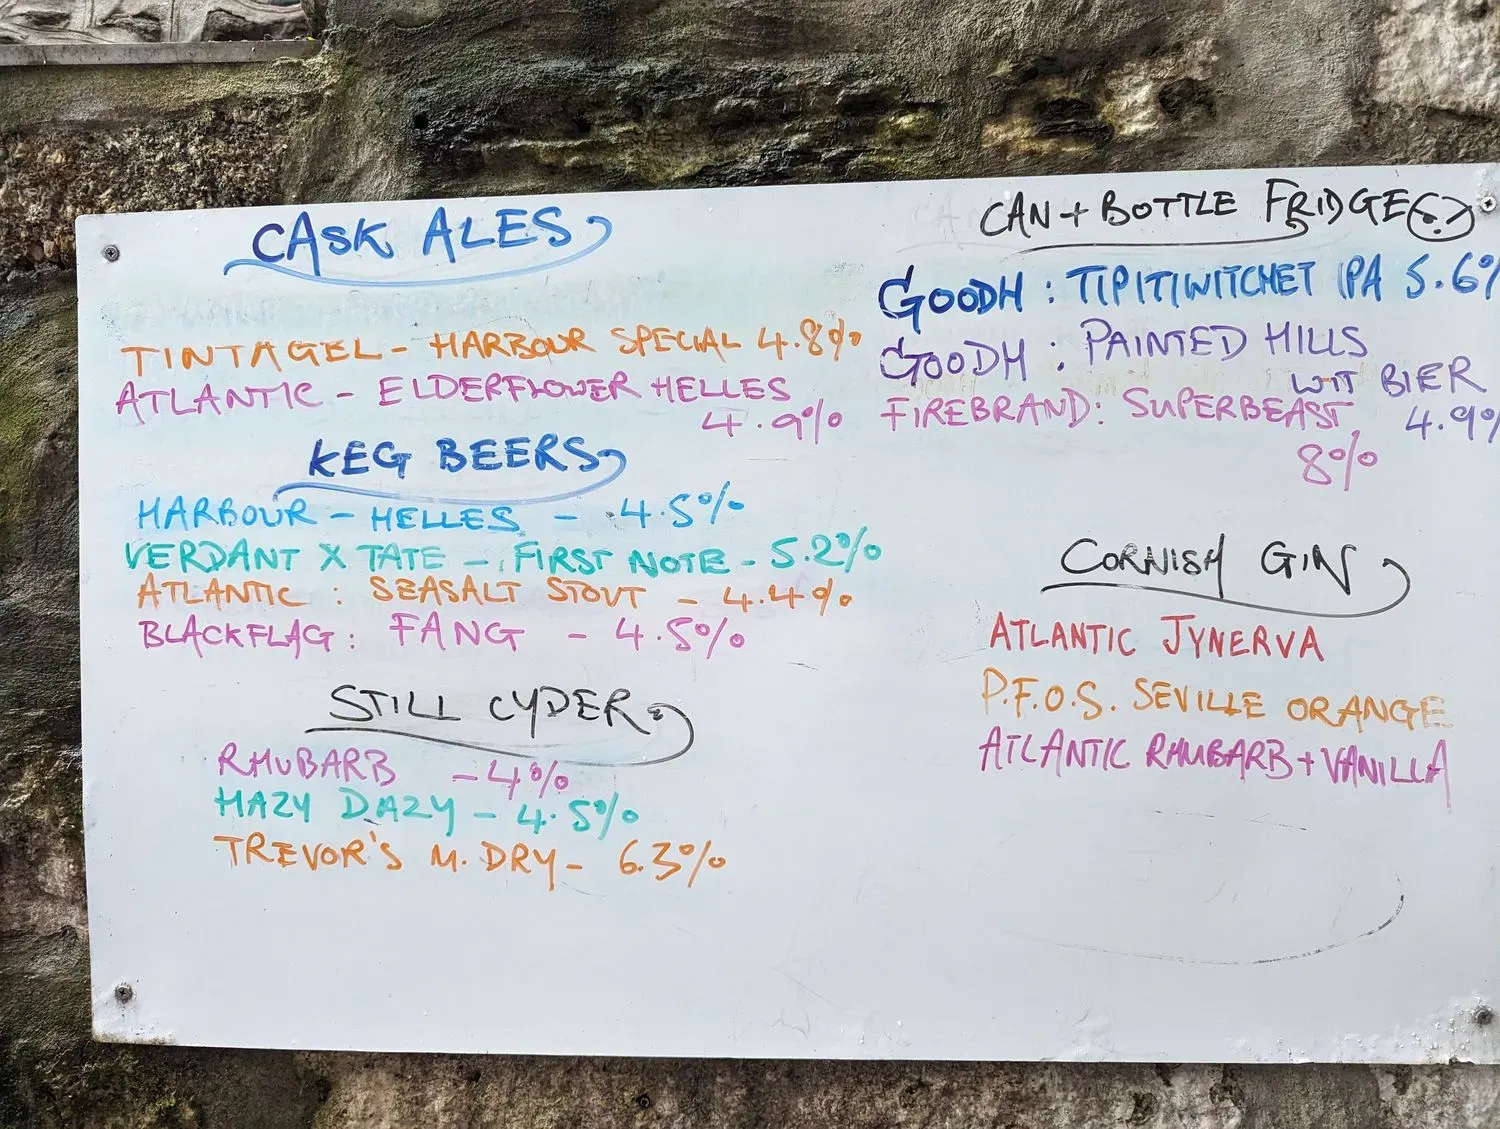 CASK ALES
TINTAGEL - HARBOUR SPECIAL 4.8%
ATLANTIC - ELDERFLOWER HELLES
4.9%
KEG BEERS
HARBOUR - HELLES - 4.5%
VERDANT X TATE - FIRST NOTE - 5.2%
ATLANTIC : SEASALT STOUT - 4.4%
BLACKFLAG : FANG - 4.5%
STILL CYDER
RHUBARB - 4%
HAZY DAZY - 4.5%
TREVOR'S M. DRY - 6.3%
CAN + BOTTLE FRIDGE
GOODH : TIPITIWITCHET IPA 5.6%
GOODH : PAINTED HILLS
WIT BIER
4.9%
FIREBRAND: SUPERBEAST
8%
CORNISH GIN
ATLANTIC JYNERVA
P.F.O.S. SEVILLE ORANGE
ATLANTIC RHUBARB + VANILLA